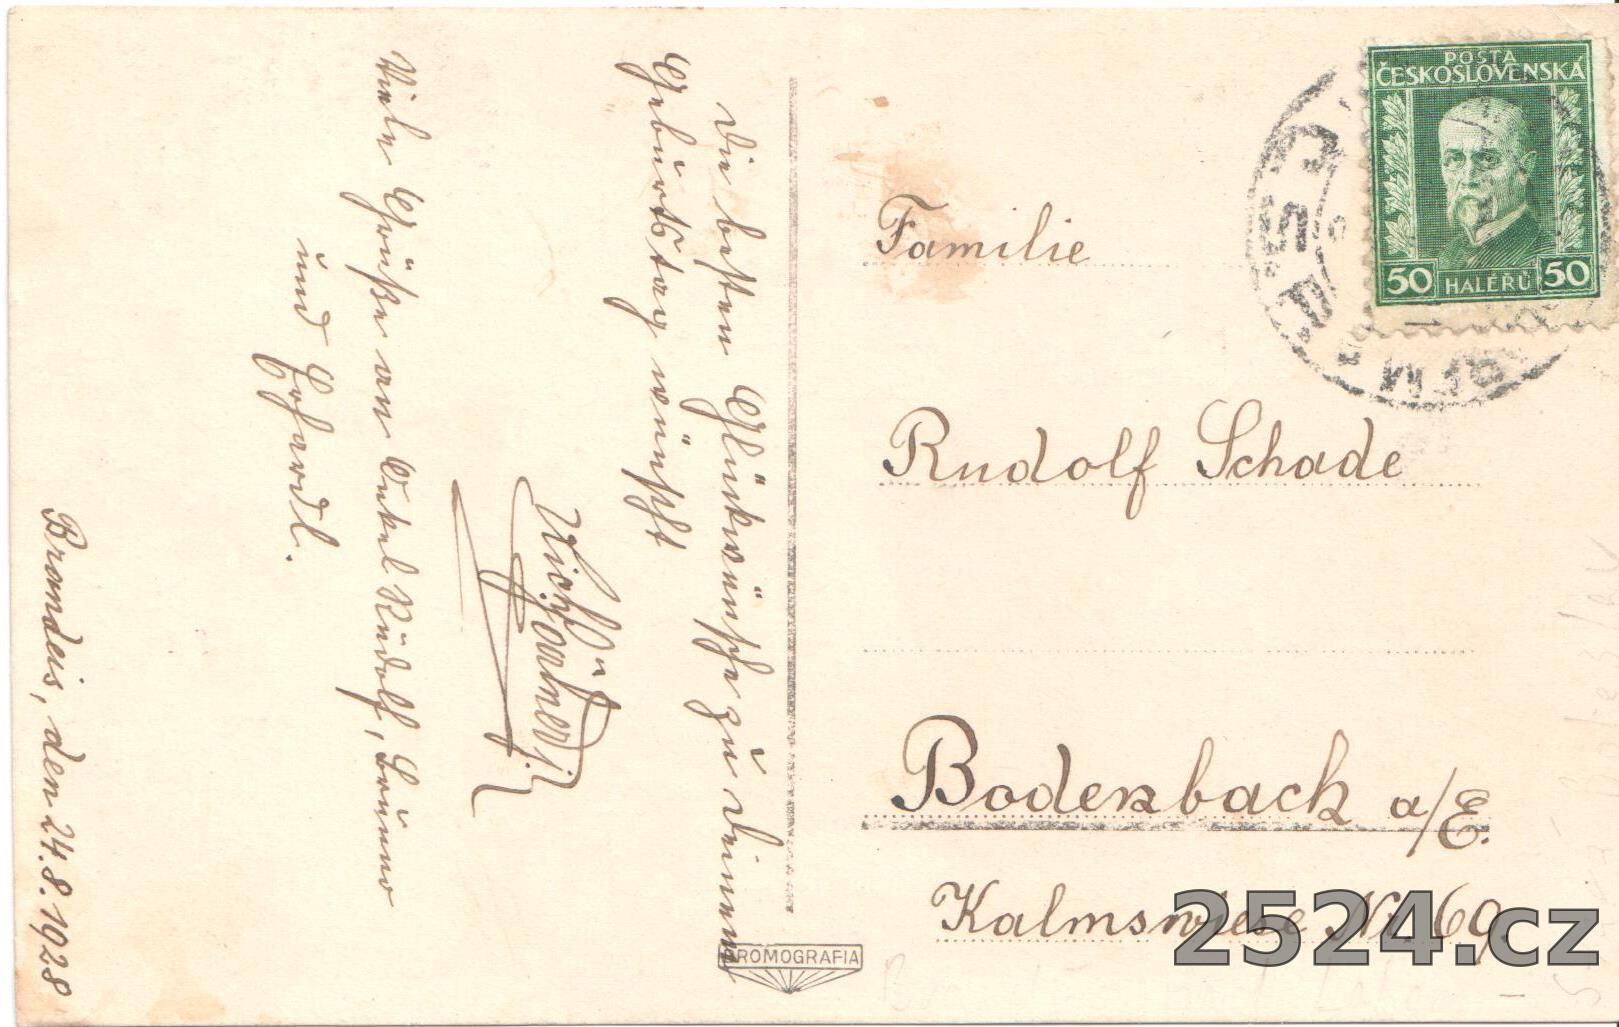 Die besten Glückwünsche zu Deinem
Geburtstag wünscht
Viele Grüße an Onkel Rudolf,
und
Brandeis, den 24.8.1928
POŠTA
ČESKOSLOVENSKÁ
50 HALÉŘŮ 50
Familie
Rudolf Schade
Bodenbach a/E.
Kalmswiese Nr. 69.
BROMOGRAFIA
2524.cz